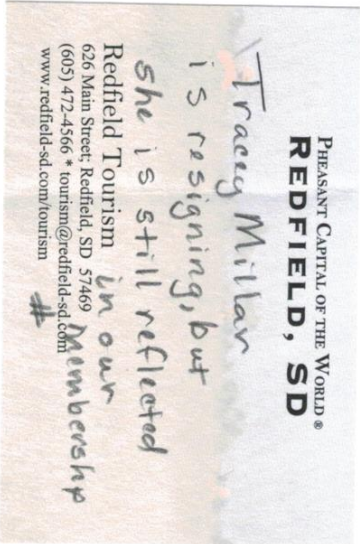 PHEASANT CAPITAL OF THE WORLD®
REDFIELD, SD
Tracey Millar
is resigning, but
she is still reflected
in our
Membership
#
Redfield Tourism
626 Main Street; Redfield, SD 57469
(605) 472-4566 * tourism@redfield-sd.com
www.redfield-sd.com/tourism